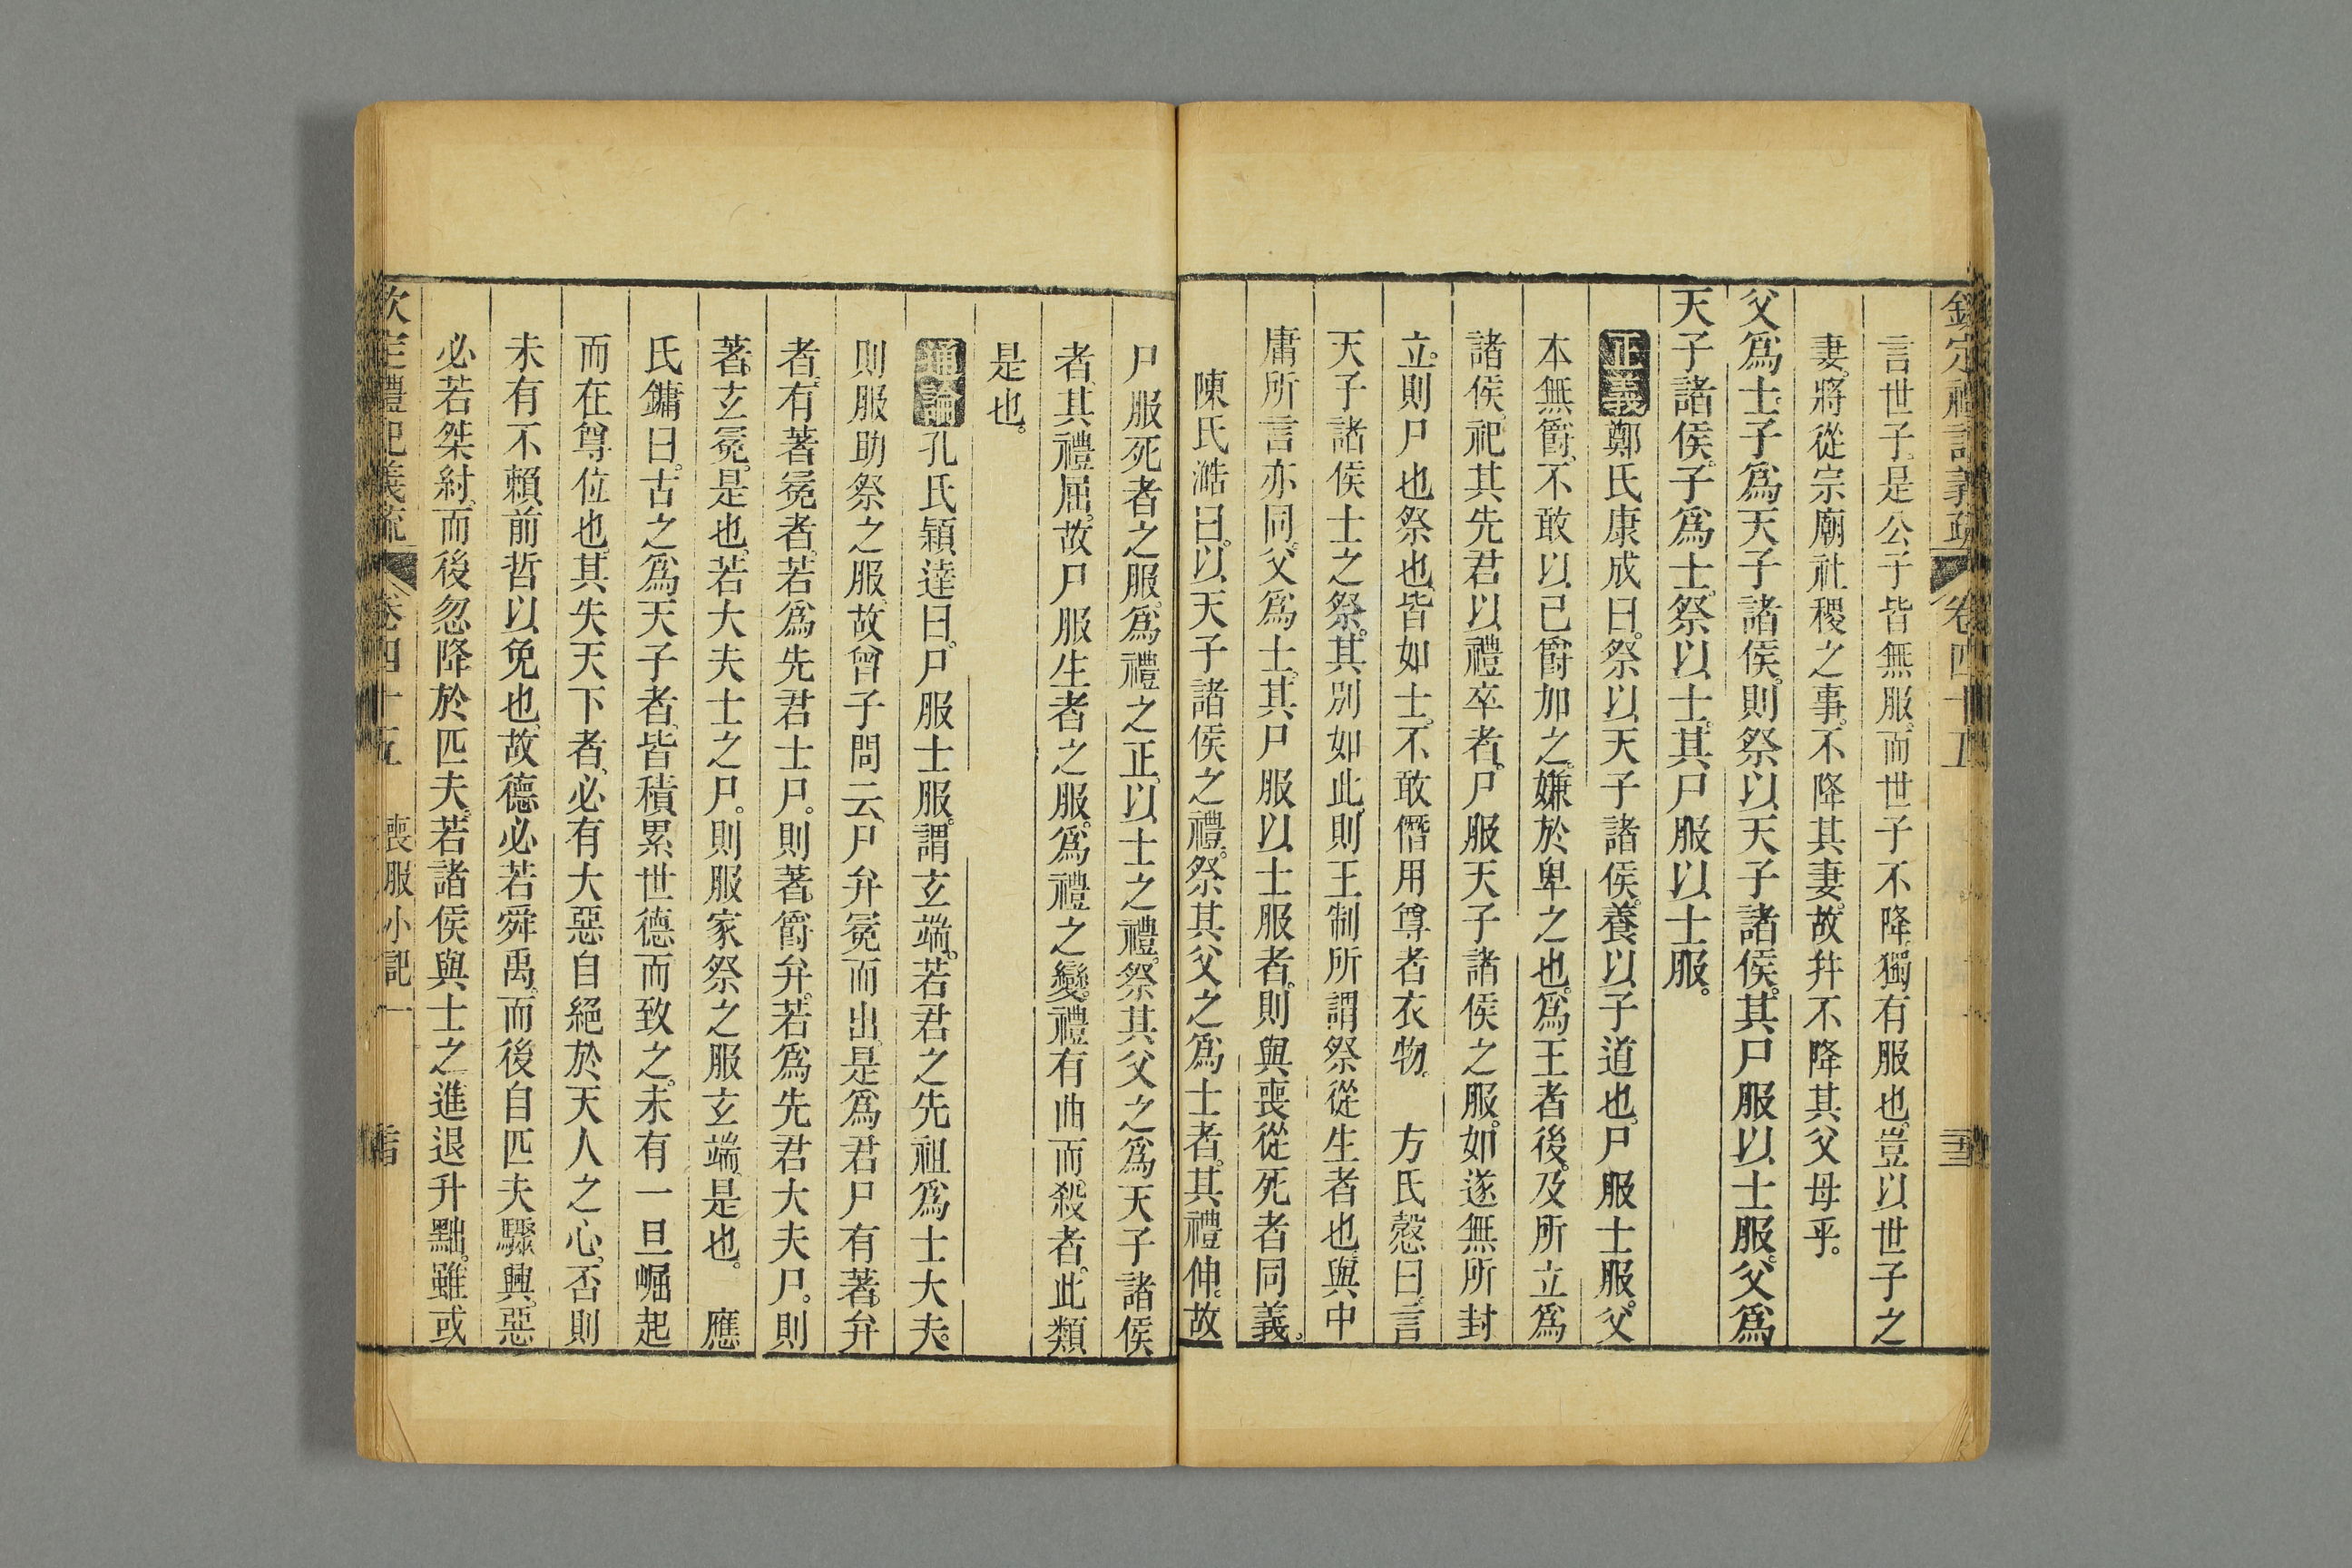 欽定禮記義疏 卷四十五
言世子是公子皆無服。而世子不降。獨有服也。豈以世子之
妻。將從宗廟社稷之事。不降其妻。故幷不降其父母乎。
父爲士。子爲天子諸侯。則祭以天子諸侯。其尸服以士服。父爲
天子諸侯。子爲士。祭以士。其尸服以士服。
正義 鄭氏康成曰。祭以天子諸侯。養以子道也。尸服士服。父
本無爵。不敢以己爵加之。嫌於卑之也。爲王者後。及所立爲
諸侯。祀其先君以禮卒者。尸服天子諸侯之服。如遂無所封
立。則尸也祭也。皆如士。不敢僭用尊者衣物。 方氏慤曰。言
天子諸侯士之祭。其別如此。則王制所謂祭從生者也。與中
庸所言亦同。父爲士。其尸服以士服者。則與喪從死者同義。
陳氏澔曰。以天子諸侯之禮。祭其父之爲士者。其禮伸。故
尸服死者之服。爲禮之正。以士之禮。祭其父之爲天子諸侯
者。其禮屈。故尸服生者之服。爲禮之變。禮有曲而殺者。此類
是也。
通論 孔氏穎達曰。尸服士服。謂玄端。若君之先祖爲士大夫。
則服助祭之服。故曾子問云。尸弁冕而出。是爲君尸有著弁
者。有著冕者。若爲先君士尸。則著爵弁。若爲先君大夫尸。則
著玄冕。是也。若大夫士之尸。則服家祭之服。玄端是也。 應
氏鏞曰。古之爲天子者。皆積累世德而致之。未有一旦崛起
而在尊位也。其失天下者。必有大惡自絕於天人之心。否則
未有不賴前哲以免也。故德必若舜禹。而後自匹夫驟興。惡
必若桀紂。而後忽降於匹夫。若諸侯與士之進退升黜。雖或
欽定禮記義疏 卷四十五 喪服小記一